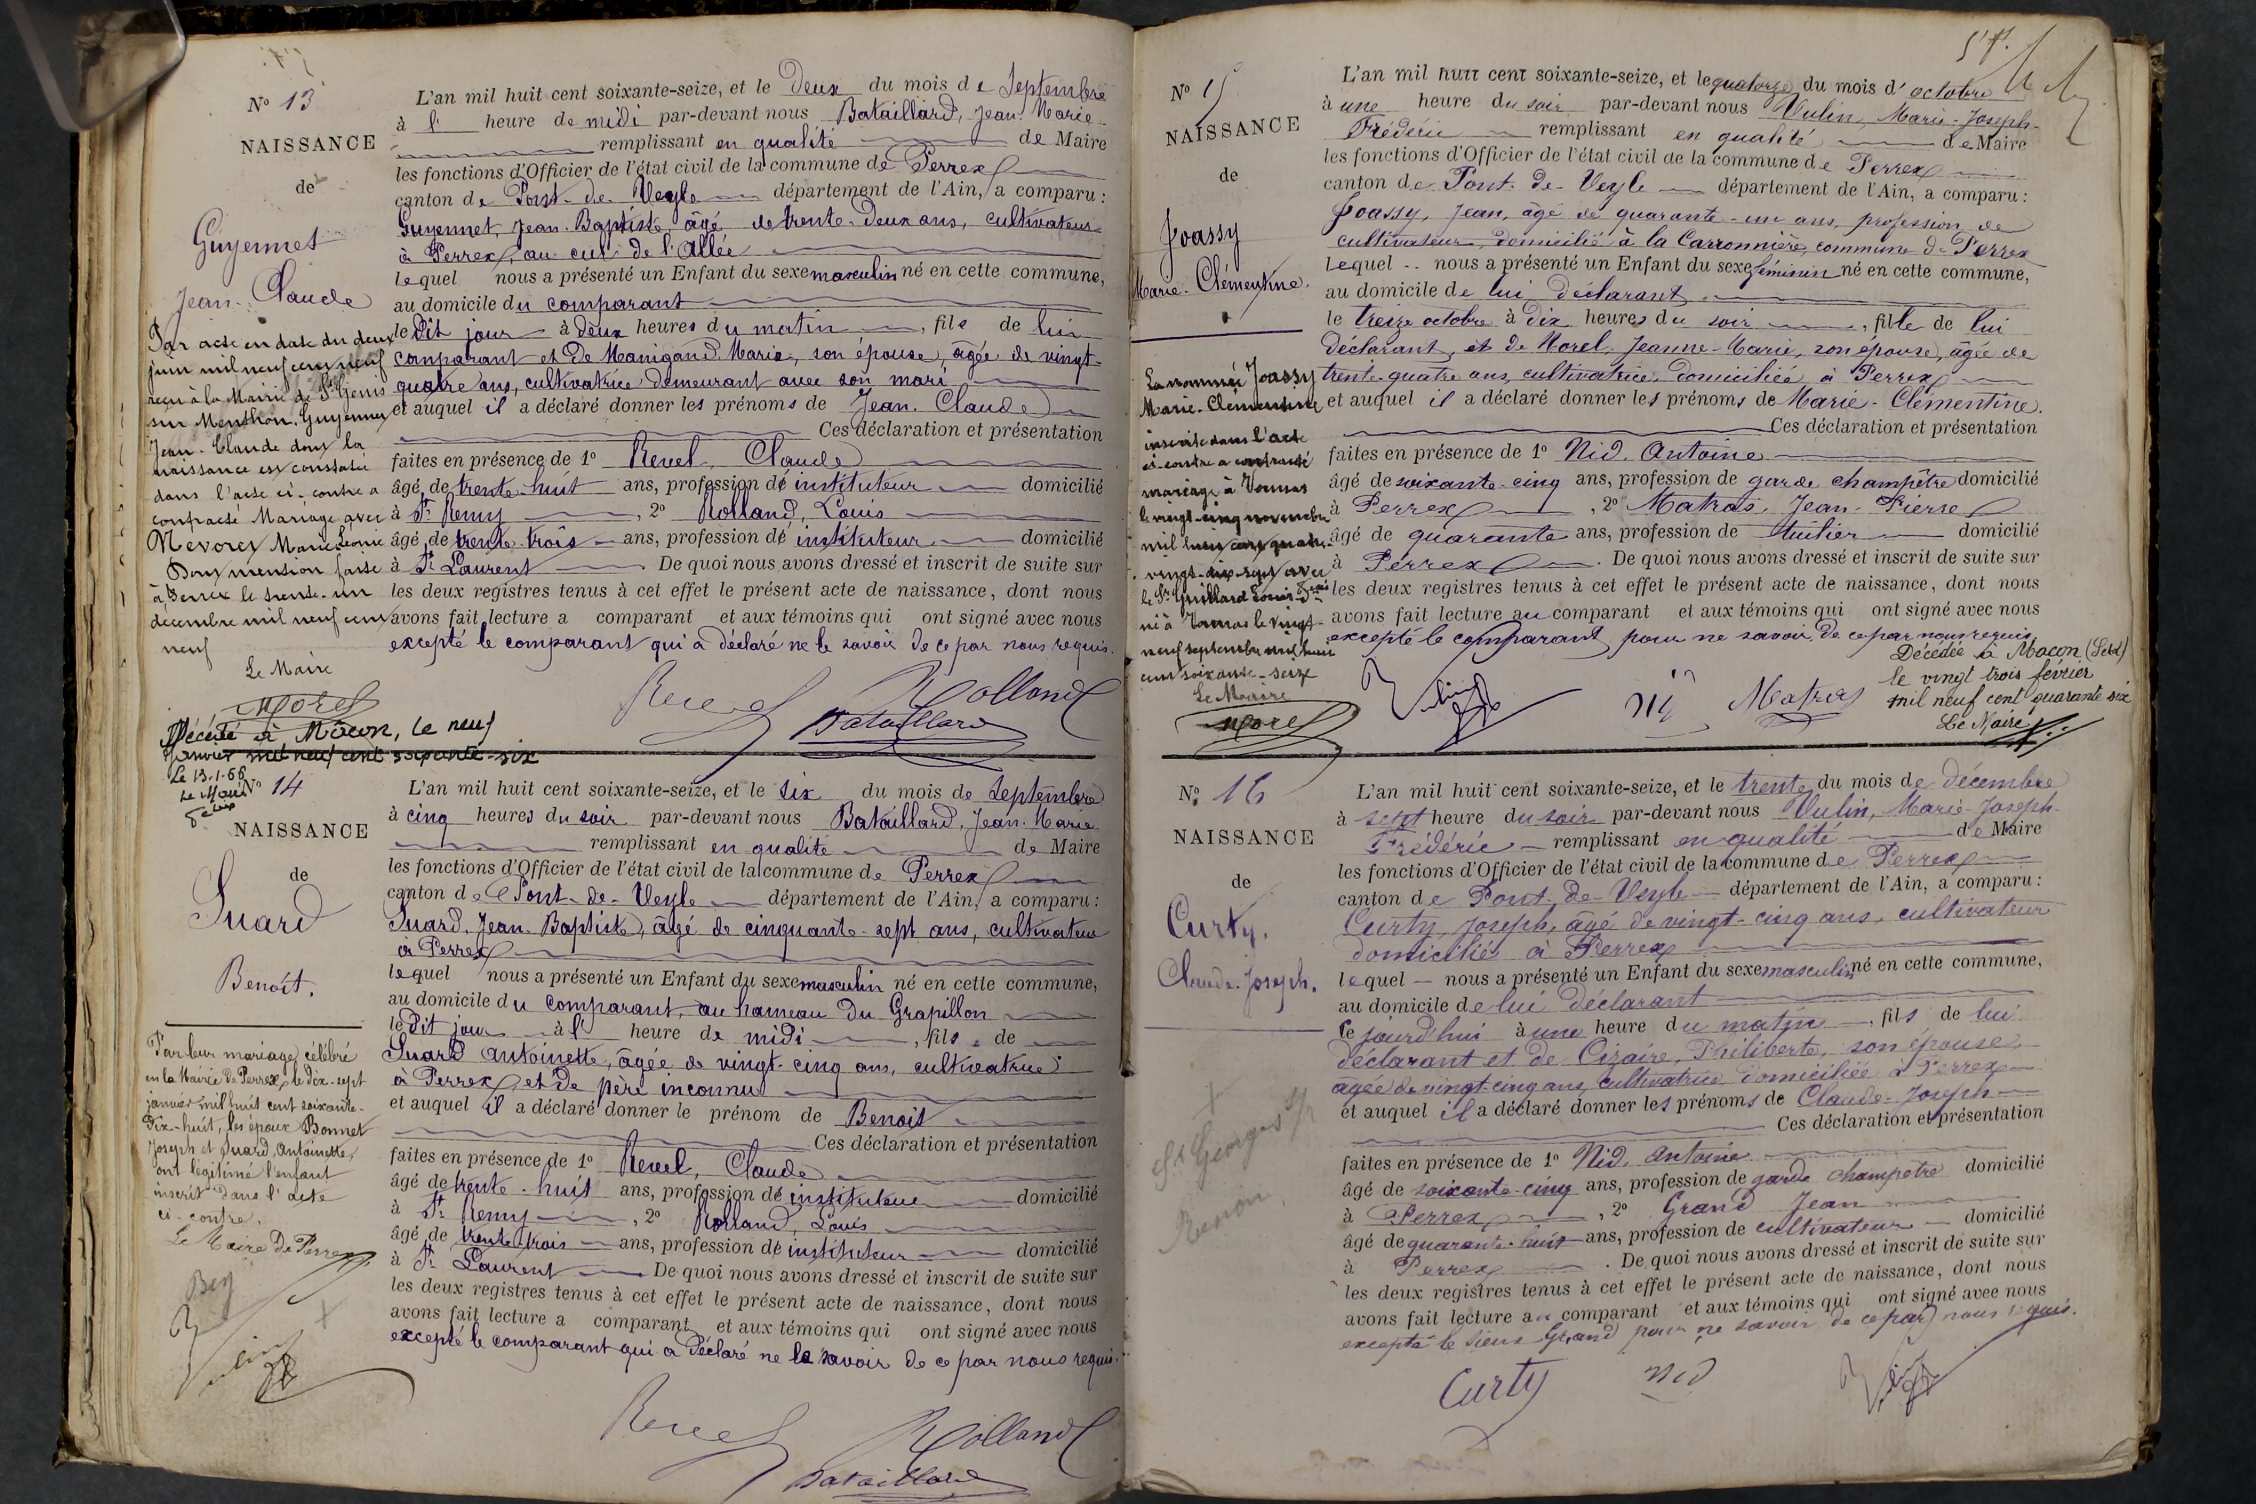 Nº 13
NAISSANCE
de
Guyennet
Jean-Claude
Par acte en date du deux
juin mil neuf cent neuf
reçu à la Mairie de St Genis
sur Menthon, Guyennet
Jean-Claude dont la
naissance est constatée
dans l'acte ci-contre a
contracté Mariage avec
Nevoret Marie Léonie
Dont mention faite
à Perrex le trente-un
décembre mil neuf cent
neuf
Le Maire
Morel
Décédé à Mâcon, le neuf
janvier mil neuf cent soixante-six
Le 13-1-66
Le Maire
L'an mil huit cent soixante-seize, et le Deux du mois de Septembre
à l' heure de midi par-devant nous Bataillard, Jean-Marie
remplissant en qualité de Maire
les fonctions d'Officier de l'état civil de la commune de Perrex
canton de Pont-de-Veyle département de l'Ain, a comparu :
Guyennet, Jean-Baptiste, âgé de trente-deux ans, cultivateur
à Perrex, au cul de l'Allée
lequel nous a présenté un Enfant du sexe masculin né en cette commune,
au domicile du comparant
le Dit jour à deux heures du matin, fils de lui
comparant et de Manigand Marie, son épouse, âgée de vingt-
quatre ans, cultivatrice demeurant avec son mari
et auquel il a déclaré donner les prénoms de Jean-Claude
Ces déclaration et présentation
faites en présence de 1º Revel, Claude
âgé de trente-huit ans, profession de instituteur domicilié
à St Remy, 2º Rolland, Louis
âgé de trente-trois ans, profession de instituteur domicilié
à St Laurent. De quoi nous avons dressé et inscrit de suite sur
les deux registres tenus à cet effet le présent acte de naissance, dont nous
avons fait lecture a comparant et aux témoins qui ont signé avec nous
excepté le comparant qui a déclaré ne le savoir de ce par nous requis.
Revel Rolland
Bataillard
Nº 14
NAISSANCE
de
Suard
Benoît.
Par leur mariage célébré
en la Mairie de Perrex, le dix-sept
janvier mil huit cent soixante-
dix-huit, les époux Bonnet
Joseph et Suard, Antoinette,
ont légitimé l'enfant
inscrit dans l'acte
ci-contre.
Le Maire de Perrex
Vulin
L'an mil huit cent soixante-seize, et le six du mois de Septembre
à cinq heures du soir par-devant nous Bataillard, Jean-Marie
remplissant en qualité de Maire
les fonctions d'Officier de l'état civil de la commune de Perrex
canton de Pont-de-Veyle département de l'Ain, a comparu :
Suard, Jean-Baptiste, âgé de cinquante-sept ans, cultivateur
à Perrex
lequel nous a présenté un Enfant du sexe masculin né en cette commune,
au domicile du comparant, au hameau du Grapillon
le Dit jour à l' heure de midi, fils de
Suard Antoinette, âgée de vingt-cinq ans, cultivatrice
à Perrex et de père inconnu
et auquel il a déclaré donner le prénom de Benoît
Ces déclaration et présentation
faites en présence de 1º Revel, Claude
âgé de trente-huit ans, profession de instituteur domicilié
à St Remy, 2º Rolland, Louis
âgé de trente-trois ans, profession de instituteur domicilié
à St Laurent De quoi nous avons dressé et inscrit de suite sur
les deux registres tenus à cet effet le présent acte de naissance, dont nous
avons fait lecture a comparant et aux témoins qui ont signé avec nous
excepté le comparant qui a déclaré ne le savoir de ce par nous requis.
Revel Rolland
Bataillard
Nº 15
NAISSANCE
de
Joassy
Marie-Clémentine.
La nommée Joassy
Marie-Clémentine
inscrite dans l'acte
ci-contre a contracté
mariage à Vonnas
le vingt-cinq novembre
mil huit cent quatre-
vingt-dix-sept avec
le Sr Guillard Louis-Frais
né à Vonnas le vingt-
neuf septembre mil huit
cent soixante-seize
Le Maire
Morel
L'an mil huit cent soixante-seize, et le quatorze du mois d'octobre
à une heure du soir par-devant nous Vulin, Marie-Joseph-
Frédéric remplissant en qualité de Maire
les fonctions d'Officier de l'état civil de la commune de Perrex
canton de Pont-de-Veyle département de l'Ain, a comparu :
Joassy, Jean, âgé de quarante-un ans, profession de
cultivateur, domicilié à la Carronnière, commune de Perrex
Lequel nous a présenté un Enfant du sexe féminin né en cette commune,
au domicile de lui déclarant
le treize octobre à dix heures du soir, fille de lui
déclarant, et de Morel, Jeanne-Marie, son épouse, âgée de
trente-quatre ans, cultivatrice, domiciliée à Perrex
et auquel il a déclaré donner les prénoms de Marie-Clémentine.
Ces déclaration et présentation
faites en présence de 1º Nid, Antoine
âgé de soixante-cinq ans, profession de garde champêtre domicilié
à Perrex, 2º Matras, Jean-Pierre
âgé de quarante ans, profession de tuilier domicilié
à Perrex. De quoi nous avons dressé et inscrit de suite sur
les deux registres tenus à cet effet le présent acte de naissance, dont nous
avons fait lecture au comparant et aux témoins qui ont signé avec nous
excepté le comparant pour ne savoir, de ce par nous requis
Décédée à Macon (S et L)
le vingt trois février
mil neuf cent quarante six
Le Maire
Vulin Nid Matras
Nº 16
NAISSANCE
de
Curty,
Claude-Joseph.
St Georges s/
Renon
L'an mil huit cent soixante-seize, et le trente du mois de décembre
à sept heure du soir par-devant nous Vulin, Marie-Joseph-
Frédéric remplissant en qualité de Maire
les fonctions d'Officier de l'état civil de la commune de Perrex
canton de Pont-de-Veyle département de l'Ain, a comparu :
Curty, Joseph, âgé de vingt-cinq ans, cultivateur
domicilié à Perrex
lequel nous a présenté un Enfant du sexe masculin né en cette commune,
au domicile de lui déclarant
ce jourd'hui à une heure du matin, fils de lui
déclarant et de Cizaire, Philiberte, son épouse,
âgée de vingt-cinq ans, cultivatrice domiciliée à Perrex
et auquel il a déclaré donner les prénoms de Claude-Joseph
Ces déclaration et présentation
faites en présence de 1º Nid, Antoine
âgé de soixante-cinq ans, profession de garde champêtre domicilié
à Perrex, 2º Grand Jean
âgé de quarante-huit ans, profession de cultivateur domicilié
à Perrex. De quoi nous avons dressé et inscrit de suite sur
les deux registres tenus à cet effet le présent acte de naissance, dont nous
avons fait lecture au comparant et aux témoins qui ont signé avec nous
excepté le sieur Grand pour ne savoir de ce par nous requis.
Curty Nid Vulin